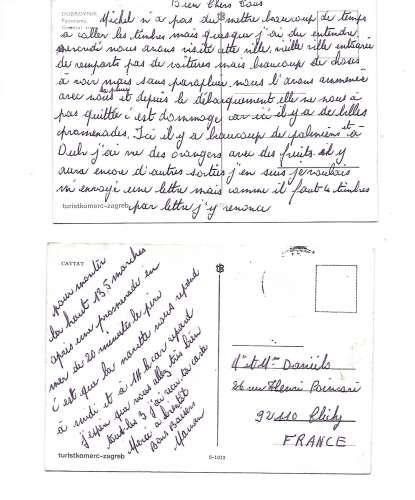 Bien Chers Tous
DUBROVNIK
Panorama
Michel n'a pas du mettre beaucoup de temps
a coller les timbres mais quesque j'ai du entendre,
mercredi nous avons visité cette ville, vieille ville entourée
de remparts pas de voitures mais beaucoup de choses
à voir mais sans parapluie, nous l'avons ammenée
avec nous la pluie et depuis le débarquement elle ne nous a
pas quittée c'est dommage car ici il y a de belles
promenades, Ici il y a beaucoup de palmiers et à
Dub j'ai vu des orangers avec des fruits. il y
aura encore d'autres sorties j'en suis je voulais
m envoyé une lettre mais comme il faut 4 timbres
turistkomerc-zagreb par lettre j'y renonce
CAVTAT
pour monter
la haut 135 marches
après une promenade en
mer de 20 minutes le pire
c'est que la navette nous reprend
à midi et à 14h le car repart
j'espère que vous allez très bien
tout les 3 j'ai reçu ta carte
Merci a bientôt
Bons Baisers
Maman
turistkomerc-zagreb
S-1013
Mr et Mme Daniels
26 rue Henri Poincaré
92110 Clichy
FRANCE